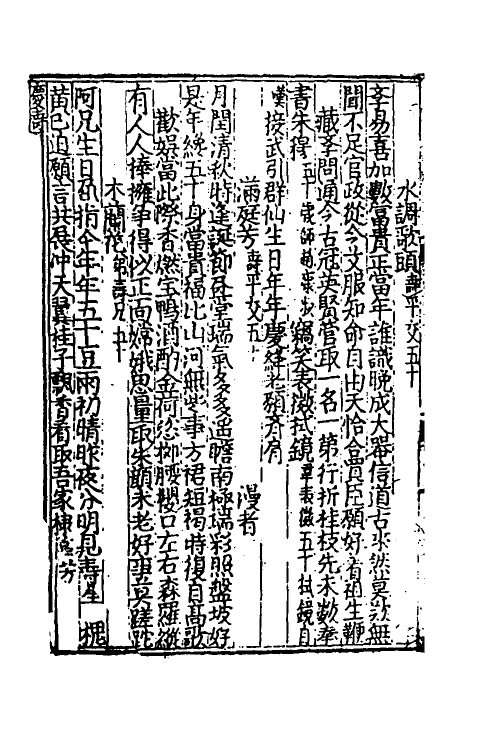 水調歌頭 壽平交五十
幸易喜加數富貴正當年誰識晚成大器信道古來然莫歎無
聞不足官政從今艾服知命自由天恰合貴臣願好看祖生鞭
藏李問通今古冠英賢管取一名一第行折桂枝先未數
書朱得 窺笑表微拭鏡 韋表微五十拭鏡自
嘆 接武引群仙生日年年慶絳老願齊肩
滿庭芳 壽平交五 漫者
月閏清秋時逢誕節华堂瑞氣多多遥瞻南極瑞彩照盤坡好
是年終五十身當貴福比山河無些事方裙短褐時復自高歌
歡娛當此際香燃宝鴨酒酌金荷 柳腰櫻口左右森羅縱
有人人捧擁爭得似正面嫦娥思量取朱顏未老好事莫蹉跎
木蘭花 弟壽兄五十 槐
阿兄生日 指今年年五十豆雨初晴昨夜分明見壽星
黄 已迫願言共展冲天翼桂子飄香看取吾家棣 芳
慶壽